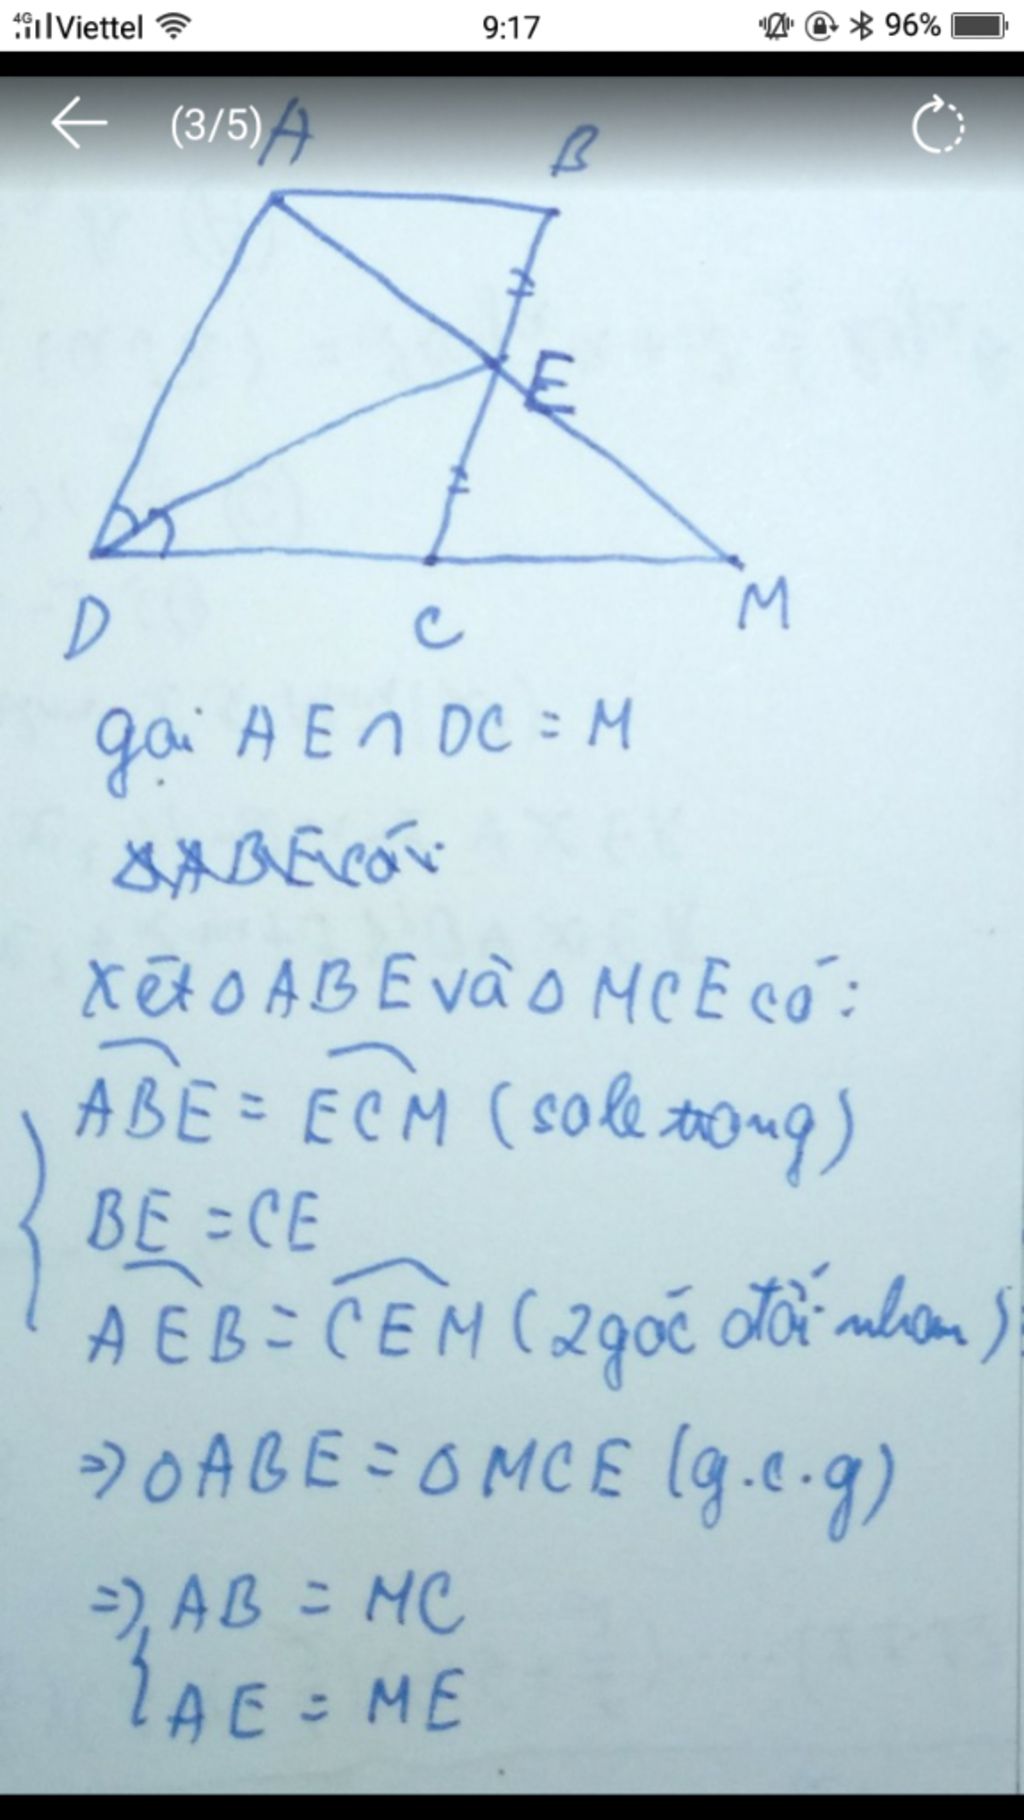 4G Viettel 9:17 96%
(3/5) A B
E
D C M
gọi AE ∩ DC = M
ΔABE có:
Xét Δ ABE và Δ MCE có:
ABE = ECM (sole trong)
BE = CE
AEB = CEM (2 góc đối nhau)
=> Δ ABE = Δ MCE (g.c.g)
=> AB = MC
AE = ME